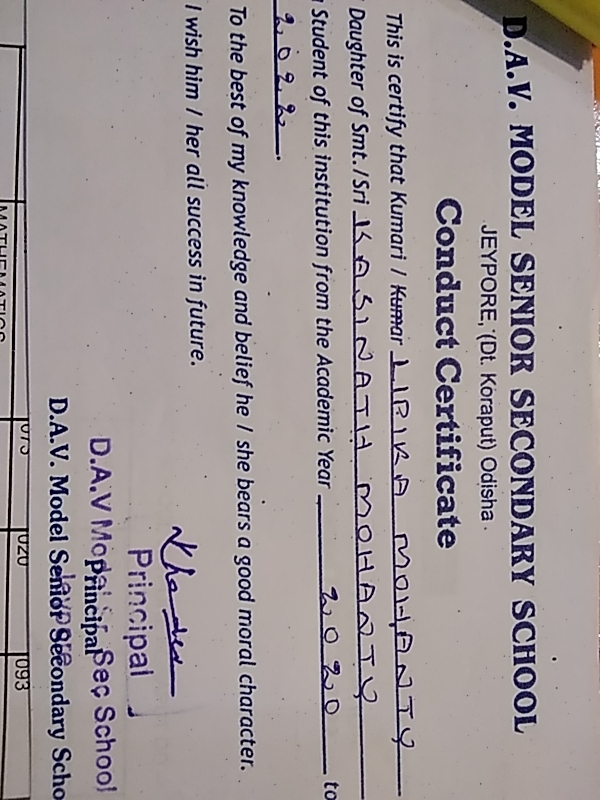 D.A.V. MODEL SENIOR SECONDARY SCHOOL
JEYPORE, (Dt. Koraput) Odisha.
Conduct Certificate
This is certify that Kumari / Kumar LIPIKA MOHANTY
Daughter of Smt./Sri KASINATH MOHANTY
Student of this institution from the Academic Year 2020 to
2022.
To the best of my knowledge and belief he / she bears a good moral character.
I wish him / her all success in future.
Principal
D.A.V Model Sr. Sec School
Principal
D.A.V. Model Senior Secondary Scho
MATHEMATICS 075 020 093